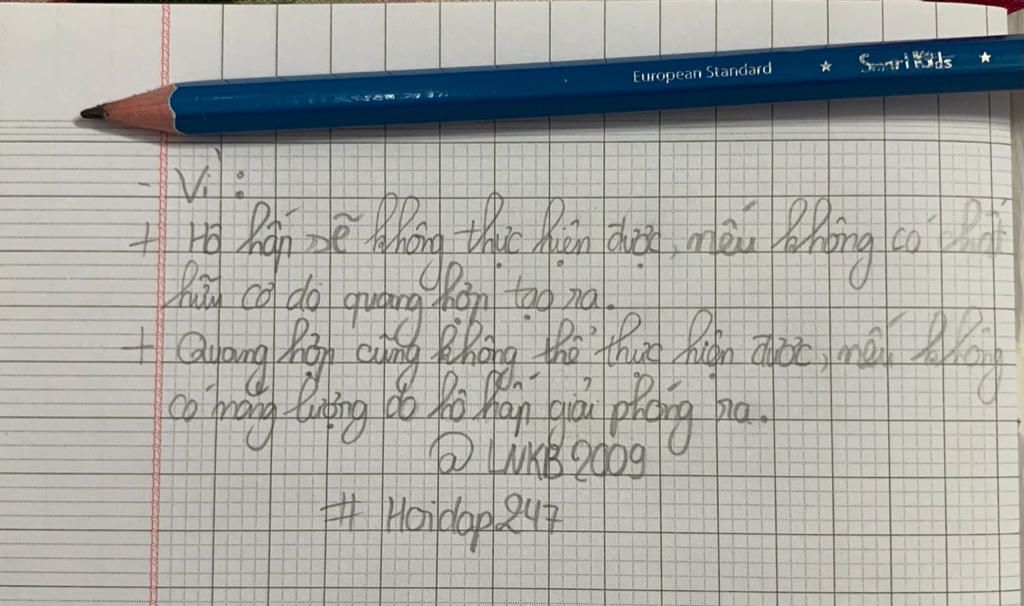 European Standard ★ Smart Kids ★
- Vì :
+ Hô hấp sẽ không thực hiện được, nếu không có chất
hữu cơ do quang hợp tạo ra.
+ Quang hợp cũng không thể thực hiện được, nếu không
có năng lượng do hô hấp giải phóng ra.
@ LNKB2009
# Hoidap247